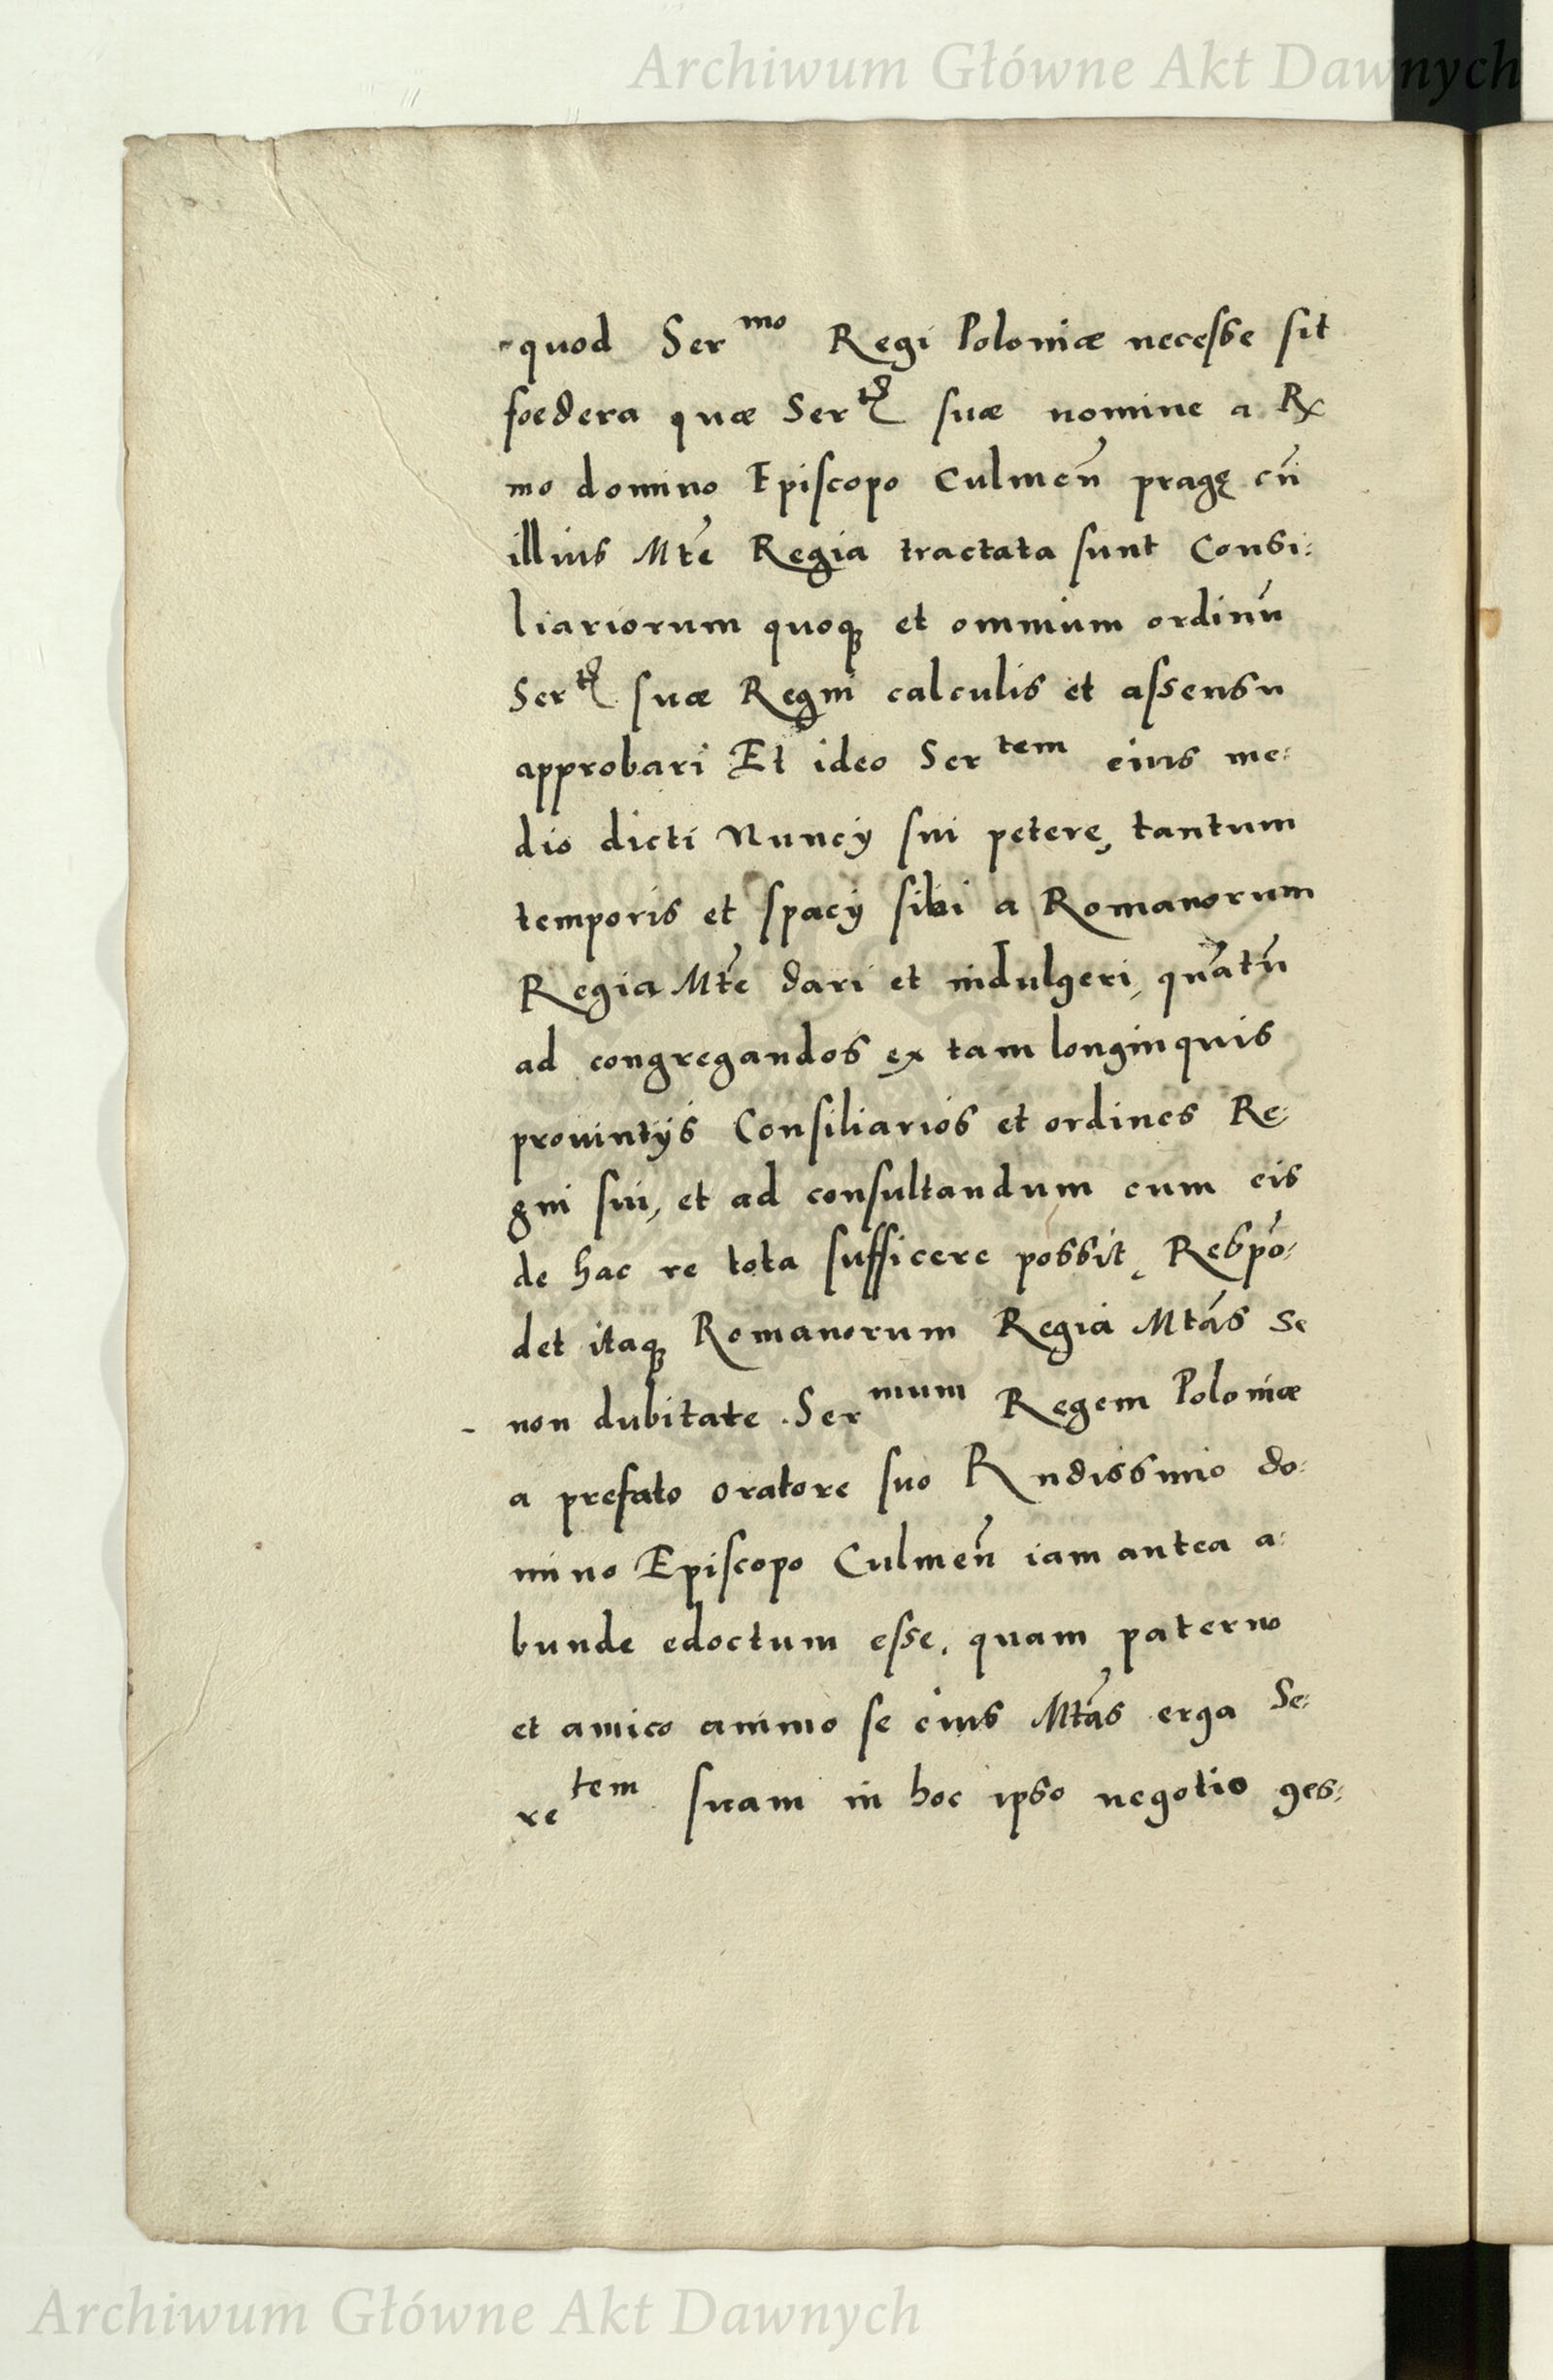 Archiwum Główne Akt Dawnych
quod Ser^mo Regi Poloniæ necesse sit
foedera quæ Ser^tis suæ nomine a Rx
mo domino Episcopo Culmeñ pragę cū
illius Mte Regia tractata sunt Consi:
liariorum quoq; et omnium ordinū
Ser^tis suæ Regni calculis et assensu
approbari Et ideo Ser^tem eius me:
dio dicti Nuncij sui petere, tantum
temporis et spacij sibi a Romanorum
Regia Mte dari et indulgeri, quātū
ad congregandos ex tam longinquis
prouintijs Consiliarios et ordines Re:
gni sui, et ad consultandum cum eis
de hac re tota sufficere possit, Respō:
det itaq; Romanorum Regia Mtas se
non dubitate Ser^mum Regem Poloniæ
a prefato oratore suo Rndissimo do:
mino Episcopo Culmeñ iam antea a:
bunde edoctum esse, quam paterno
et amico animo se eius Mtas erga Se:
re^tem suam in hoc ipso negotio ges:
Archiwum Główne Akt Dawnych